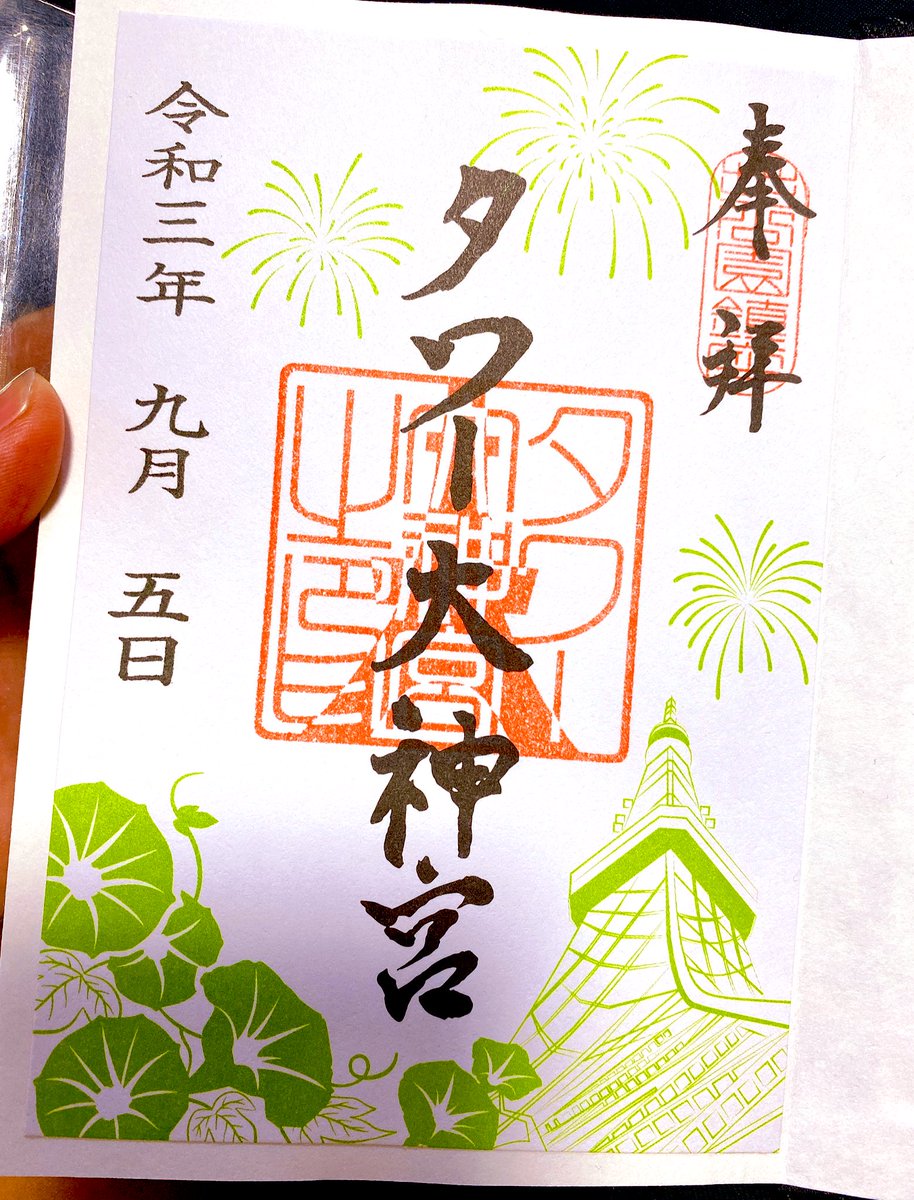 奉拝
タワー大神宮
タワー
大神宮
之印
令和三年 九月 五日